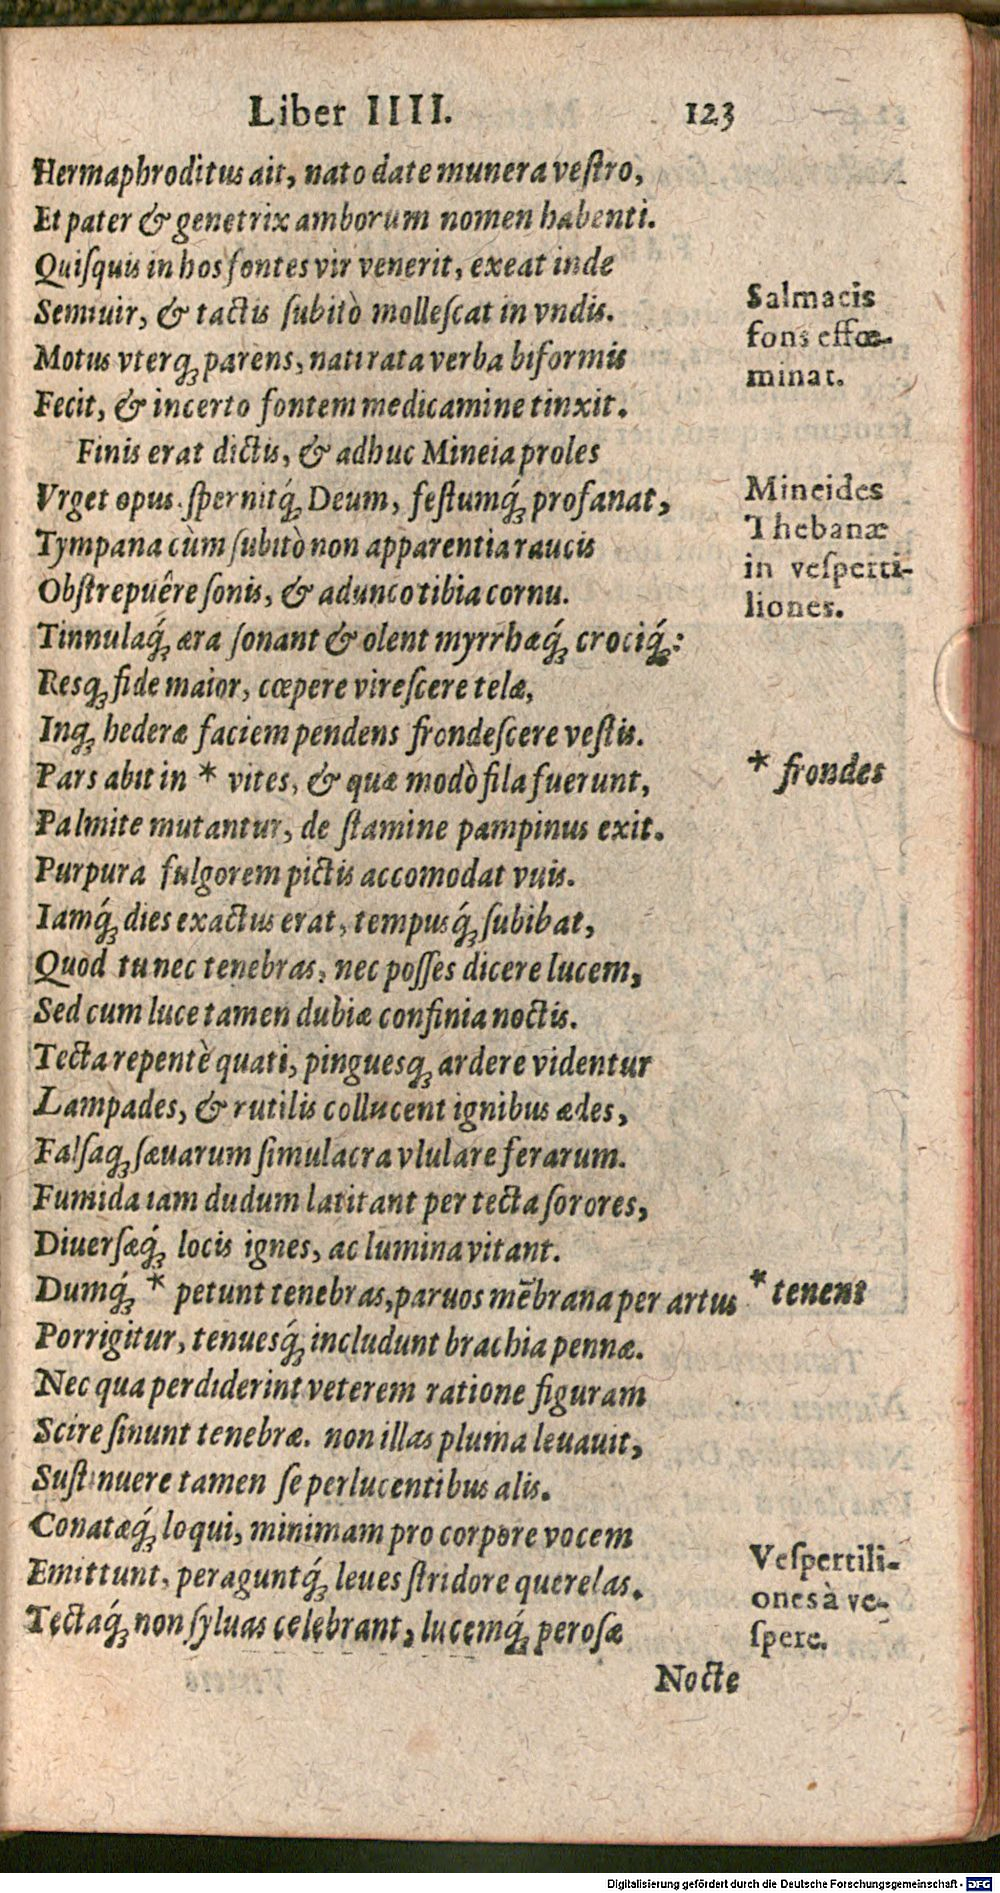 Liber IIII. 123
Hermaphroditus ait, nato date munera veſtro,
Et pater & genetrix amborum nomen habenti.
Quiſquis in hos fontes vir venerit, exeat inde
Semiuir, & tactis ſubitò molleſcat in vndis.
Salmacis
fons effœ-
minat.
Motus vterq́; parens, nati rata verba biformis
Fecit, & incerto fontem medicamine tinxit.
Finis erat dictis, & adhuc Mineia proles
Vrget opus. ſpernitq́; Deum, feſtumq́; profanat,
Tympana cùm ſubitò non apparentia raucis
Obſtrepuêre ſonis, & adunco tibia cornu.
Mineides
Thebanæ
in veſperti-
liones.
Tinnulaq́; æra ſonant & olent myrrhæq́; crociq́;:
Resq; fide maior, cœpere vireſcere telæ,
Inq; hederæ faciem pendens frondeſcere veſtis.
Pars abit in * vites, & quæ modò fila fuerunt,
* frondes
Palmite mutantur, de ſtamine pampinus exit.
Purpura fulgorem pictis accomodat vuis.
Iamq́; dies exactus erat, tempusq́; ſubibat,
Quod tu nec tenebras, nec poſſes dicere lucem,
Sed cum luce tamen dubiæ confinia noctis.
Tecta repentè quati, pinguesq; ardere videntur
Lampades, & rutilis collucent ignibus ædes,
Falſaq; ſæuarum ſimulacra vlulare ferarum.
Fumida iam dudum latitant per tecta ſorores,
Diuerſæq́; locis ignes, ac lumina vitant.
Dumq́; * petunt tenebras, paruos mēbrana per artus
* tenent
Porrigitur, tenuesq́; includunt brachia pennæ.
Nec qua perdiderint veterem ratione figuram
Scire ſinunt tenebræ. non illas pluma leuauit,
Suſtinuere tamen ſe perlucentibus alis.
Conatæq́; loqui, minimam pro corpore vocem
Emittunt, peraguntq́; leues ſtridore querelas.
Tectaq́; non ſyluas celebrant, lucemq́; peroſæ
Veſpertili-
ones à ve-
ſpere.
Nocte
Digitalisierung gefördert durch die Deutsche Forschungsgemeinschaft - DFG